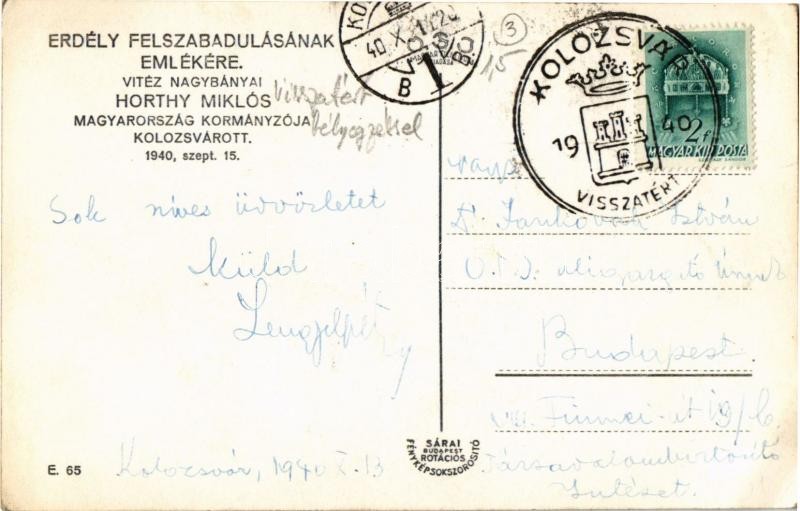 ERDÉLY FELSZABADULÁSÁNAK
EMLÉKÉRE.
VITÉZ NAGYBÁNYAI
HORTHY MIKLÓS
MAGYARORSZÁG KORMÁNYZÓJA
KOLOZSVÁROTT.
1940, szept. 15.
visszatért
bélyegzéssel
Sok szives üdvözletet
küld
E. 65
Kolozsvár, 1940 X. 13
SÁRAI
BUDAPEST
ROTÁCIÓS
FÉNYKÉPSOKSZOROSÍTÓ
3
15
B
1
KOLOZSVÁR
1940
VISSZATÉRT
2f
MAGYAR KIR. POSTA
Dr. Jankovich István
O.T.I. aligazgató úrnak
Budapest.
VIII. Fiumei-út 19/b
Társadalombiztosító
Intézet.